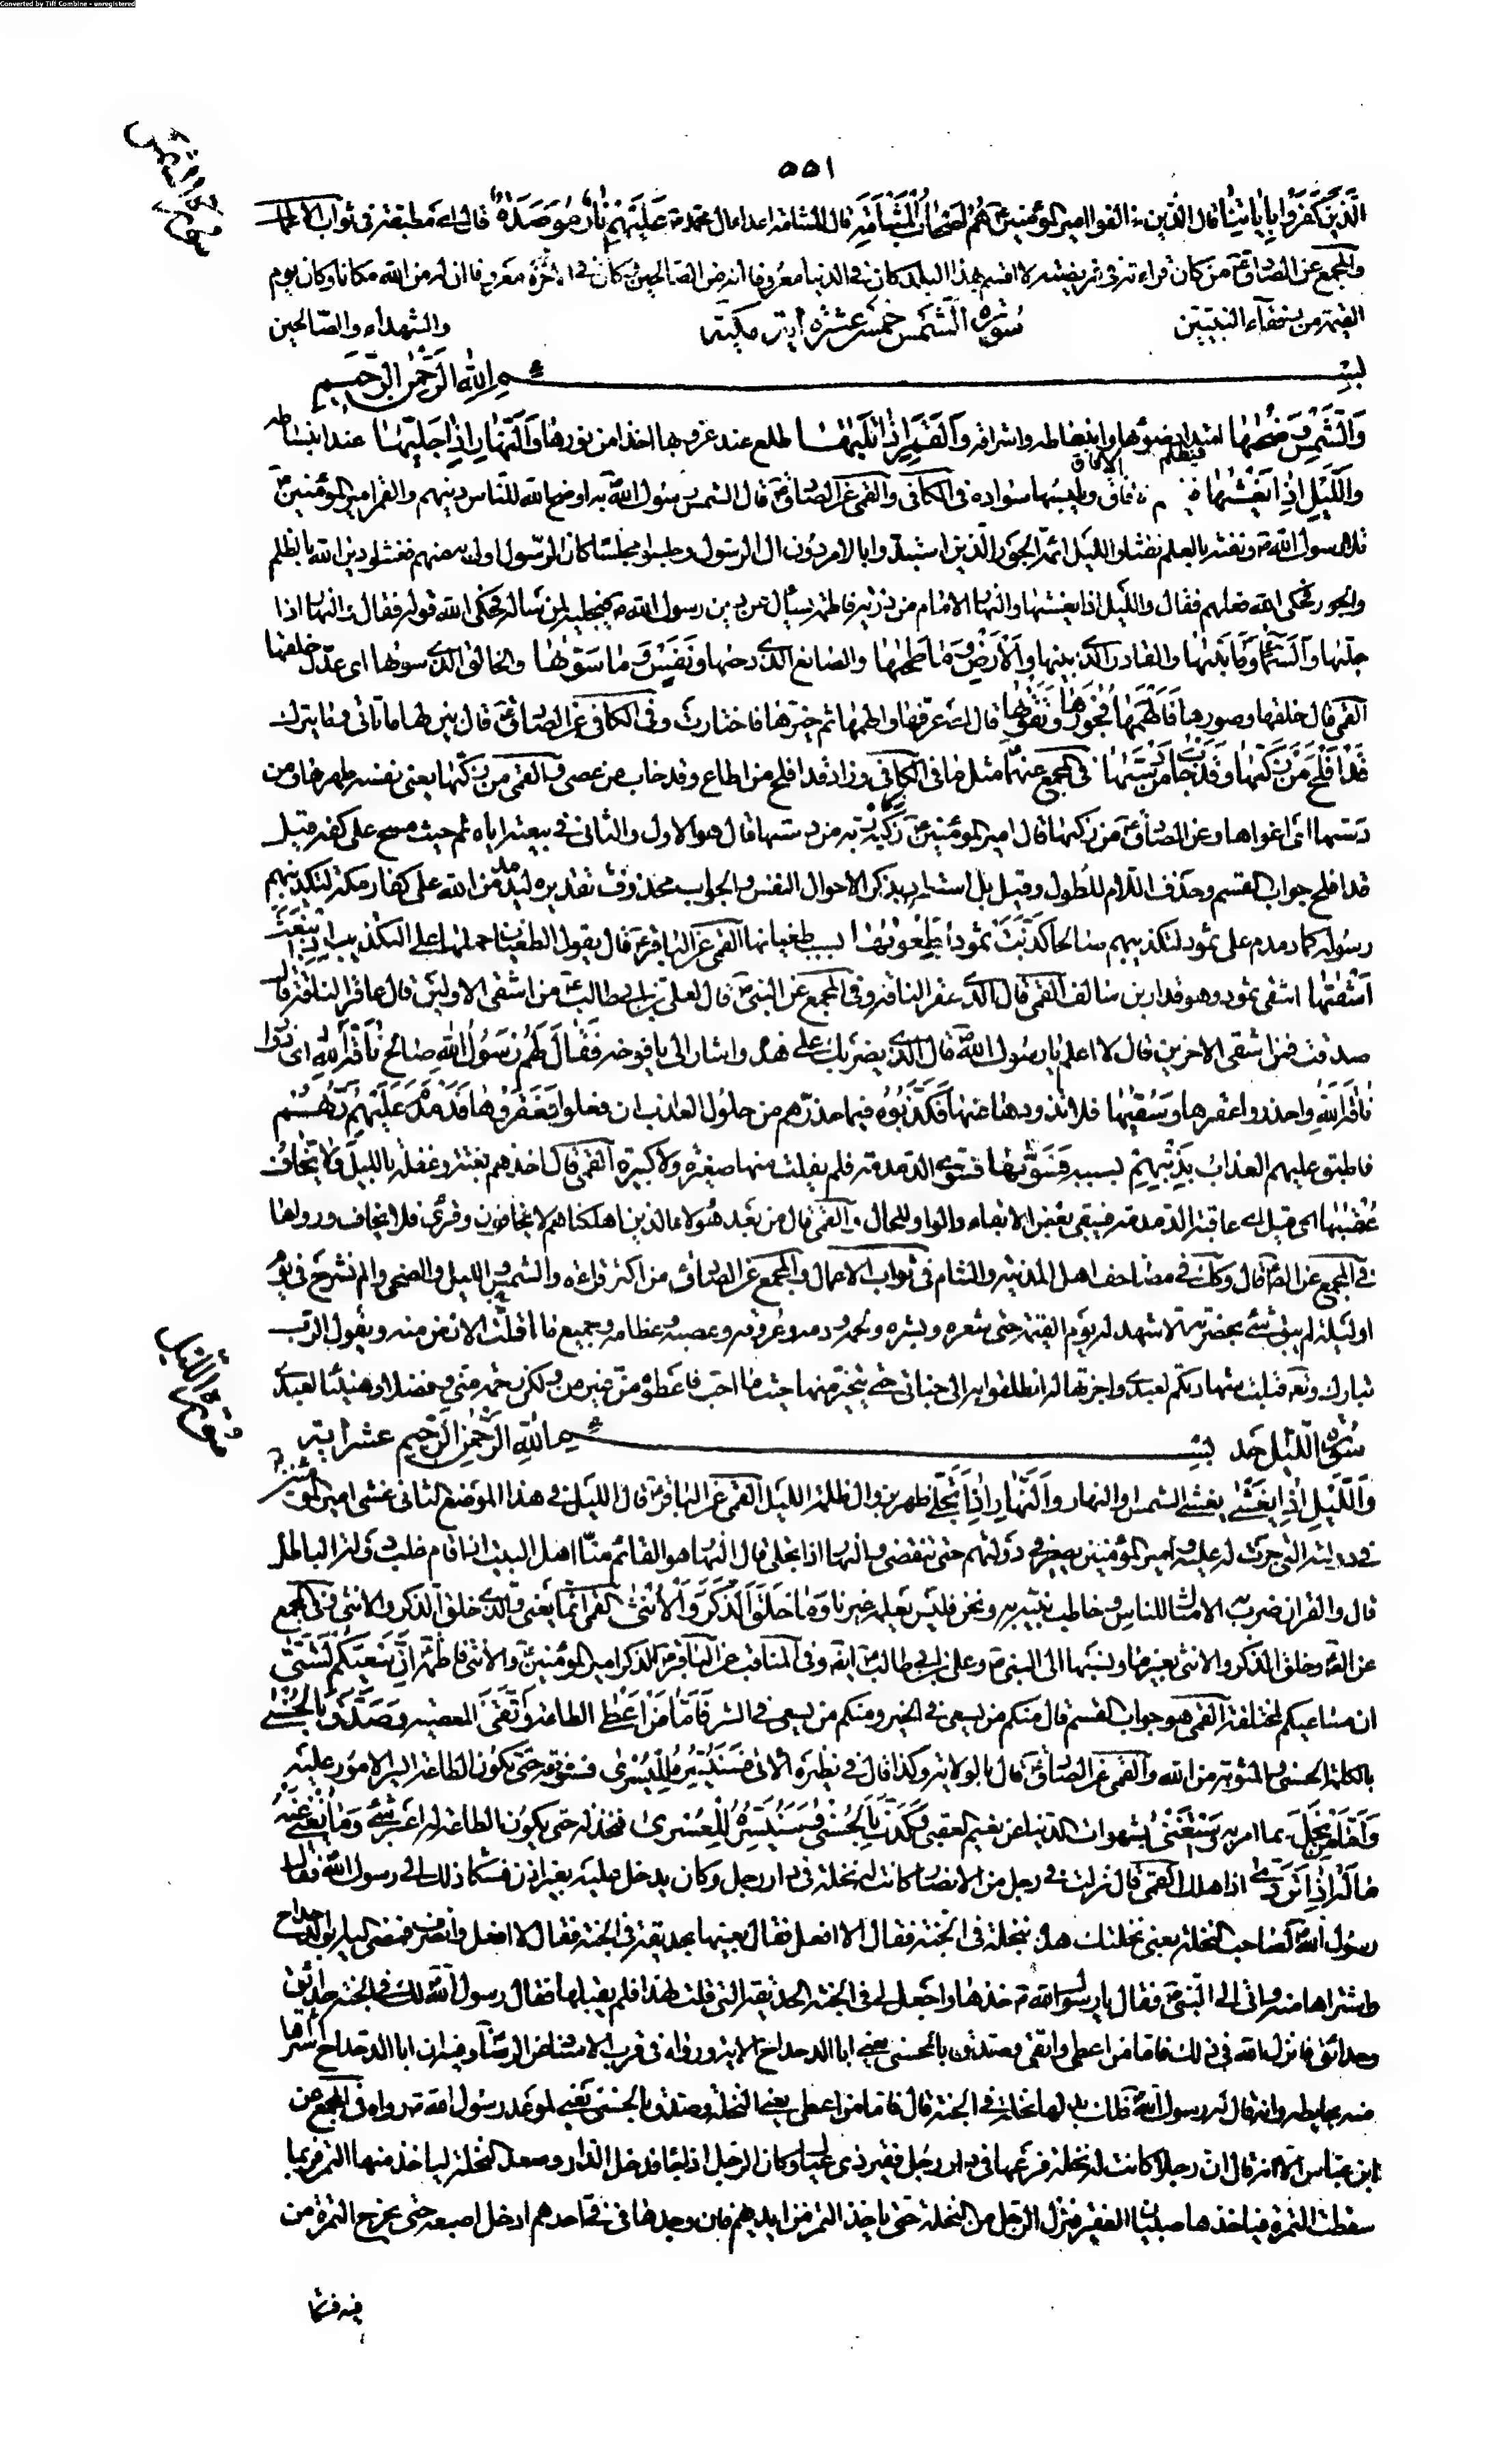 Converted by Tiff Combine - unregistered
٥٥١
سورة الشمس
الَّذِينَ كَفَرُوا بِآيَاتِنَا قال الذين خالفوا امير المؤمنين ع هُمْ أَصْحَابُ الْمَشْأَمَةِ قال المشأمة اعداء ال محمد ص عَلَيْهِمْ نَارٌ مُوصَدَةٌ قال اى مطبقة فى ثواب الاعمال
والمجمع عن الصادق ع من كان قراءته فى فريضته لا اقسم بهذا البلد كان فى الدنيا معروفا انه من الصالحين وكان فى الاخرة معروفا ان له من الله مكانا وكان يوم
القيمة من رفقاء النبيين والشهداء والصالحين
سورة الشمس خمس عشرة اية مكية
بسم الله الرحمن الرحيم
وَالشَّمْسِ وَضُحَيهَا امتداد ضوئها وانبساطه واشراقه وَالْقَمَرِ إِذَا تَلَيهَا طلع عند غروبها اخذا من نورها وَالنَّهَارِ إِذَا جَلَّيهَا عند انبساطه
وَاللَّيْلِ إِذَا يَغْشَيهَا فيظلم الافاق ويلبسها سواده فى الكافى والقمى عن الصادق ع قال الشمس رسول الله ص به اوضح الله للناس دينهم والقمر امير المؤمنين ع
تلا رسول الله ص ونفثه بالعلم نفثا والليل ائمة الجور الذين استبدوا بالامر دون ال الرسول وجلسوا مجلسا كان الرسول اولى به منهم فغشوا دين الله بالظلم
والجور فحكى الله فعلهم فقال والليل اذا يغشيها والنهار الامام من ذرية فاطمة يسأل عن دين رسول الله ص فيجليه لمن سأله فحكى الله قوله فقال والنهار اذا
جليها وَالسَّمَاءِ وَمَا بَنَيهَا والقادر الذى بنيها وَالْأَرْضِ وَمَا طَحَيهَا والصانع الذى دحيها وَنَفْسٍ وَمَا سَوَّيهَا والخالق الذى سويها اى عدل خلقها
القمى قال خلقها وصورها فَأَلْهَمَهَا فُجُورَهَا وَتَقْوَيهَا قال اى عرفها والهمها ثم خيرها فاختارت وفى الكافى عن الصادق ع قال بين لها ما تاتى وما تترك
قَدْ أَفْلَحَ مَنْ زَكَّيهَا وَقَدْ خَابَ مَنْ دَسَّيهَا فى المجمع عنهما مثل ما فى الكافى وزاد قد افلح من اطاع وقد خاب من عصى والقمى من زكيها يعنى نفسه طهرها ومن
دسيها اى اغواها وعن الصادق ع من زكيها قال امير المؤمنين ع زكاه ربه من دسيها قال هو الاول والثانى فى بيعته اياه ثم حيث مسح على كفه قيل
قد افلح جواب القسم وحذف اللام للطول وقيل بل استطراد بذكر احوال النفس والجواب محذوف تقديره ليدمدمن الله على كفار مكة لتكذيبهم
رسوله كما دمدم على ثمود لتكذيبهم صالحا كَذَّبَتْ ثَمُودُ بِطَغْوَيهَا بسبب طغيانها القمى عن الباقر ع قال يقول الطغيان حملها على التكذيب إِذِ انْبَعَثَ
أَشْقَيهَا اشقى ثمود وهو قدار بن سالف القمى قال الذى عقر الناقة وفى المجمع عن النبى ص قال لعلى بن ابى طالب ع من اشقى الاولين قال عاقر الناقة قال
صدقت فمن اشقى الاخرين قال لا اعلم يا رسول الله ص قال الذى يضربك على هذه واشار الى يافوخه فَقَالَ لَهُمْ رَسُولُ اللَّهِ صالح نَاقَةَ اللَّهِ اى ذروا
ناقة الله واحذروا عقرها وَسُقْيَيهَا فلا تذودوها عنها فَكَذَّبُوهُ فيما حذرهم من حلول العذاب ان فعلوا فَعَقَرُوهَا فَدَمْدَمَ عَلَيْهِمْ رَبُّهُمْ
فاطبق عليهم العذاب بِذَنْبِهِمْ بسببه فَسَوَّيهَا فسوى الدمدمة فلم يفلت منها صغير ولا كبير القمى قال اخذهم بغتة وغفلة بالليل وَلَا يَخَافُ
عُقْبَيهَا اى قيل اى عاقبة الدمدمة فيبقى بعض الابقاء والواو للحال والقمى قال من بعد هؤلاء الذين اهلكناهم لا يخافون وقرئ فلا يخاف ورواها
فى المجمع عن الصادق ع قال وكذلك فى مصاحف اهل المدينة والشام فى ثواب الاعمال والمجمع عن الصادق ع من اكثر قراءة والشمس والليل والضحى والم نشرح فى يوم
او ليلة لم يبق شئ بحضرته الا شهد له يوم القيمة حتى شعره وبشره ولحمه ودمه وعروقه وعصبه وعظامه وجميع ما اقلت الارض منه ويقول الرب
تبارك وتعالى قبلت شهادتكم لعبدى واجزتها له انطلقوا به الى جنانى حتى يتخير منها حيث ما احب فاعطوه من غير من ولكن رحمة منى وفضلا وهنيئا لعبدى
سورة الليل احد بسم الله الرحمن الرحيم عشر اية
سورة الليل
وَاللَّيْلِ إِذَا يَغْشَى يغشى الشمس او النهار وَالنَّهَارِ إِذَا تَجَلَّى ظهر بزوال ظلمة الليل القمى عن الباقر ع قال الليل فى هذا الموضع الثانى غشى امير المؤمنين
فى دولته التى جرت له عليه وامير المؤمنين يصبر فى دولتهم حتى تنقضى والنهار اذا تجلى قال النهار هو القائم منا اهل البيت اذا قام غلب دولة الباطل
قال والقران ضرب فيه الامثال للناس وخاطب نبيه به ونحن فليس يعلمه غيرنا وَمَا خَلَقَ الذَّكَرَ وَالْأُنْثَى القمى انما يعنى والذى خلق الذكر والانثى وفى المجمع
عن الصادق ع وخلق الذكر والانثى بغير ما ونسبها الى النبى ص وعلى بن ابى طالب ع ايضا وفى المناقب عن الباقر ع الذكر امير المؤمنين ع والانثى فاطمة ع إِنَّ سَعْيَكُمْ لَشَتَّى
ان مساعيكم لمختلفة القمى هو جواب القسم قال منكم من يسعى فى الخير ومنكم من يسعى فى الشر فَأَمَّا مَنْ أَعْطَى الطاعة وَاتَّقَى المعصية وَصَدَّقَ بِالْحُسْنَى
بالكلمة الحسنى والمثوبة من الله والقمى عن الصادق ع قال بالولاية وكذا قال فى نظيره الاتى فَسَنُيَسِّرُهُ لِلْيُسْرَى فسنوفقه حتى تكون الطاعة ايسر الامور عليه
وَأَمَّا مَنْ بَخِلَ بما امر به وَاسْتَغْنَى بشهوات الدنيا عن نعيم العقبى وَكَذَّبَ بِالْحُسْنَى فَسَنُيَسِّرُهُ لِلْعُسْرَى فنخذله حتى يكون الطاعة له اعسر شئ وَمَا يُغْنِي عَنْهُ
مَالُهُ إِذَا تَرَدَّى اذا هلك القمى قال نزلت فى رجل من الانصار كانت له نخلة فى دار رجل وكان يدخل عليه بغير اذن فشكا ذلك الى رسول الله ص فقال
رسول الله ص لصاحب النخلة بعنى نخلتك هذه بنخلة فى الجنة فقال لا افعل فقال بعنيها بحديقة فى الجنة فقال لا افعل وانصرف فمضى اليه ابو الدحداح
واشتراها منه واتى الى النبى ص فقال يا رسول الله ص خذها واجعل لى فى الجنة الحديقة التى قلت لهذا فلم يقبلها فقال رسول الله ص لك فى الجنة حدائق
وحدائق فانزل الله فى ذلك فاما من اعطى واتقى وصدق بالحسنى يعنى ابا الدحداح الاية ورواه فى قرب الاسناد عن الرضا ع وفيه ان ابا الدحداح اشتراها
منه بحائطه وانه قال له رسول الله ص فلك بدلها نخلة فى الجنة قال فاما من اعطى يعنى النخلة وصدق بالحسنى يعنى بموعد رسول الله ص ورواه فى المجمع عن
ابن عباس الا انه قال ان رجلا كانت له نخلة فرعها فى دار رجل فقير ذى عيال وكان الرجل اذا جاء فدخل الدار وصعد النخلة لياخذ منها التمر فربما
سقطت التمرة فياخذها صبيان الفقير فينزل الرجل من النخلة حتى ياخذ التمر من ايديهم فان وجدها فى فى احدهم ادخل اصبعه حتى يخرج التمرة من
فيه فشكا